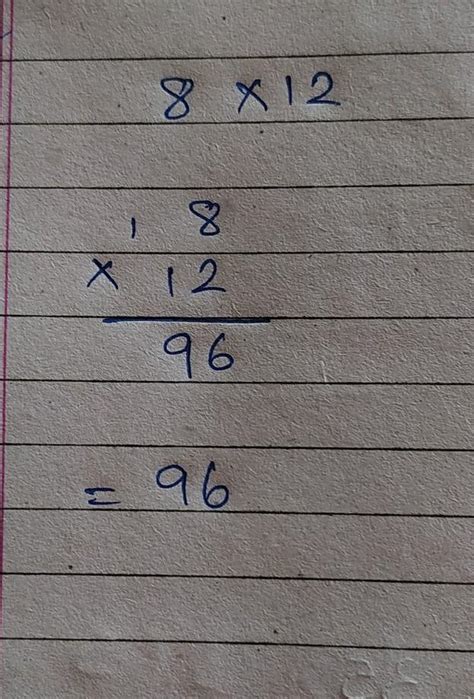 8 × 12
1 8
× 12
96
= 96